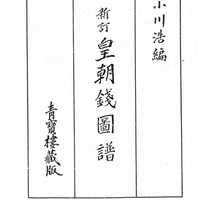 小川浩編
新訂 皇朝錢圖譜
青寶樓藏版